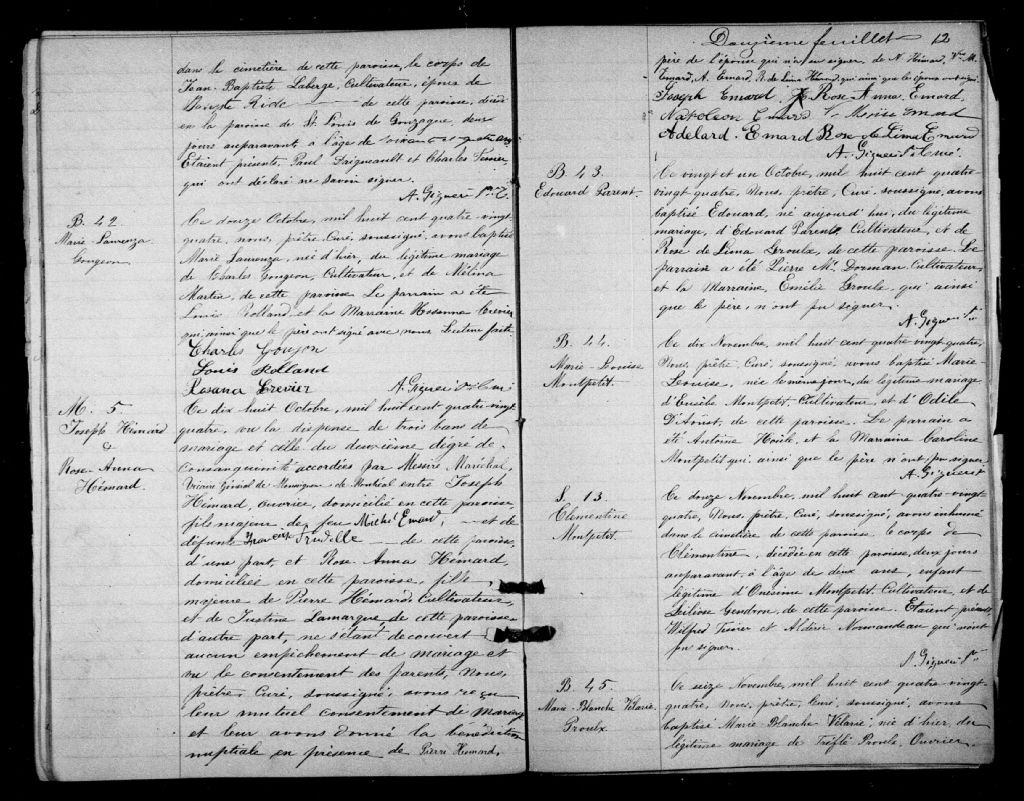 dans le cimetière de cette paroisse, le corps de
Jean-Baptiste Laberge, Cultivateur, époux de
de cette paroisse, décédé
en la paroisse de St. Louis de Gonzague, deux
jours auparavant à l'âge de soixante et quatre ans
Etaient présents, Paul Daigneault et Charles Tessier,
qui ont déclaré ne savoir signer.
A. Giguère Ptre
B. 42
Marie-Laurenza
Gougeon
Ce douze Octobre, mil huit cent quatre vingt
quatre, nous, prêtre, Curé, soussigné, avons baptisé
Marie Laurenza, née d'hier, du légitime mariage
de Charles Gougeon, Cultivateur, et de Mélina
Martin, de cette paroisse. Le parrain a été
Louis Rolland, et la Marraine Rosanna Crevier
qui ainsi que le père ont signé avec nous. Lecture faite.
Charles Goujon
Louis Rolland
Rosana Crevier
A. Giguère Ptre Curé
M. 5.
Joseph Hémard
&
Rose-Anna
Hémard.
Ce dix huit Octobre, mil huit cent quatre-vingt
quatre, vu la dispense de trois bans de
mariage et celle du deuxième dégré de
consanguinité accordées par Messire Maréchal,
Vicaire Général de Monseigneur de Montréal entre Joseph
Hémard, ouvrier, domicilié en cette paroisse,
fils majeur de feu Michel Emard, et de
défunte Trudelle de cette paroisse,
d'une part, et Rose-Anna Hémard,
domiciliée en cette paroisse, fille
majeure de Pierre Hémard, Cultivateur,
et de Justine Lamarque de cette paroisse
d'autre part, ne s'étant découvert
aucun empêchement de mariage et
vu le consentement des parents, Nous,
prêtre, Curé, soussigné, avons reçu
leur mutuel consentement de mariage
et leur avons donné la bénédiction
nuptiale en présence de Pierre Hémard,
Douzième feuillet 12
père de l'épouse qui n'a su signer, de N. Hémard, M.
Emard, A. Emard, R. de Lima Hémard, qui ainsi que les époux ont signé
Joseph Emard. Rose Anna Emard,
Napoleon Emard Moise Emard
Adelard. Emard Rose de Lima Emard
A. Giguère Ptre Curé.
B. 43.
Edouard Parent.
Ce vingt et un Octobre, mil huit cent quatre-
vingt quatre, Nous, prêtre, Curé, soussigné, avons
baptisé Edouard, né aujourd'hui, du légitime
mariage, d'Edouard Parent, Cultivateur, et de
Rose de Lima Groulx, de cette paroisse. Le
parrain a été Pierre Mc Dorman, Cultivateur,
et la Marraine, Emélie Groulx, qui ainsi
que le père, n'ont pu signer.
A. Giguère Ptre
B. 44.
Marie-Louise
Montpetit.
Ce dix Novembre, mil huit cent quatre-vingt-quatre,
Nous, prêtre, Curé, soussigné, avons baptisé Marie-
Louise, née le même jour, du légitime mariage
d'Eusèbe Montpetit, Cultivateur, et d'Odile
D'Aoust, de cette paroisse. Le parrain a
été Antoine et la Marraine Caroline
Montpetit qui ainsi que le père n'ont pu signer
A. Giguère Ptre
S. 13.
Clémentine
Montpetit.
Ce douze Novembre, mil huit cent quatre-vingt-
quatre, Nous, prêtre, Curé, soussigné, avons inhumé
dans le cimetière de cette paroisse le corps de
Clémentine, décédée en cette paroisse, deux jours
auparavant, à l'âge de deux ans, enfant
légitime d'Onésime Montpetit, Cultivateur, et de
Gendron, de cette paroisse. Etaient présents
Wilfred Tessier et Aldéric Normandeau qui n'ont
pu signer.
A. Giguère Ptre
B. 45.
Marie Blanche Vélarie
Proulx.
Ce seize Novembre, mil huit cent quatre-vingt-
quatre, Nous, prêtre, Curé, soussigné, avons
baptisé Marie Blanche Vélarie, née d'hier, du
légitime mariage de Trefflé Proulx, Ouvrier,